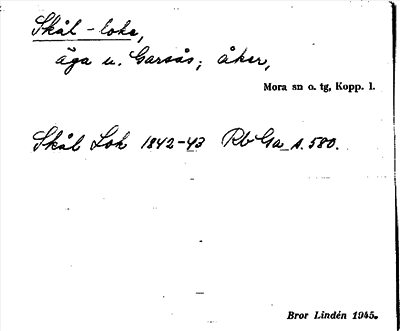 Skål-loke,
äga u. Garsås; åker,
Mora sn o. tg, Kopp. l.
Skål Lok 1842-43 Rb Ga s. 580.
Bror Lindén 1945.